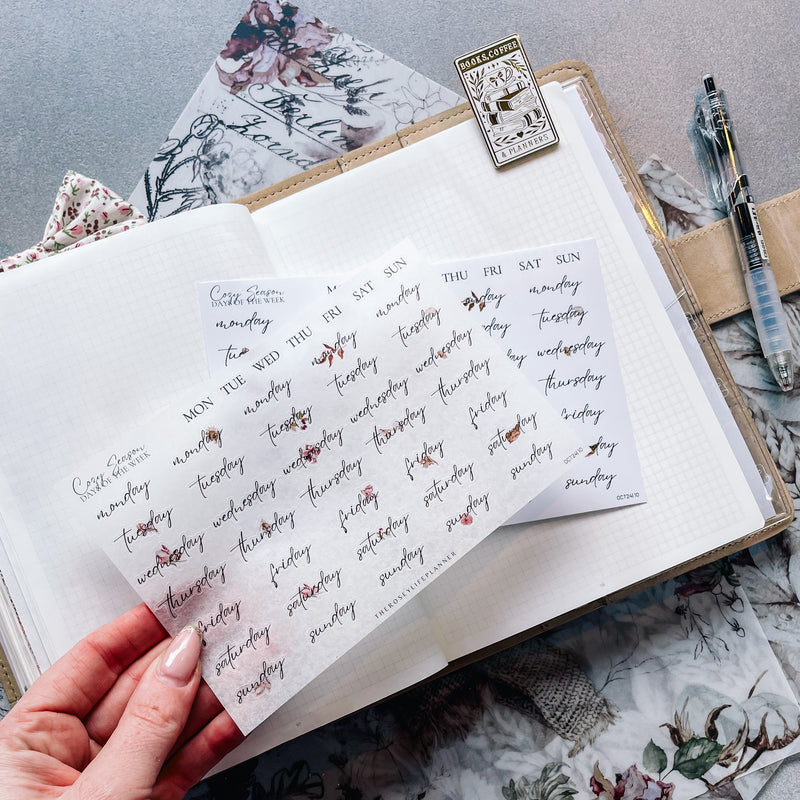 BOOKS, COFFEE
& PLANNERS
Cozy Season
DAYS OF THE WEEK
MON TUE WED THU FRI SAT SUN
monday monday monday monday monday
tuesday tuesday tuesday tuesday tuesday
wednesday wednesday wednesday wednesday wednesday
thursday thursday thursday thursday thursday
friday friday friday friday friday
saturday saturday saturday saturday saturday
sunday sunday sunday sunday sunday
THEROSEYLIFEPLANNER
OCT24L10
Cozy Season
DAYS OF THE WEEK
THU FRI SAT SUN
monday sunday monday
tuesday
wednesday
thursday
friday
sunday
OCT24L10